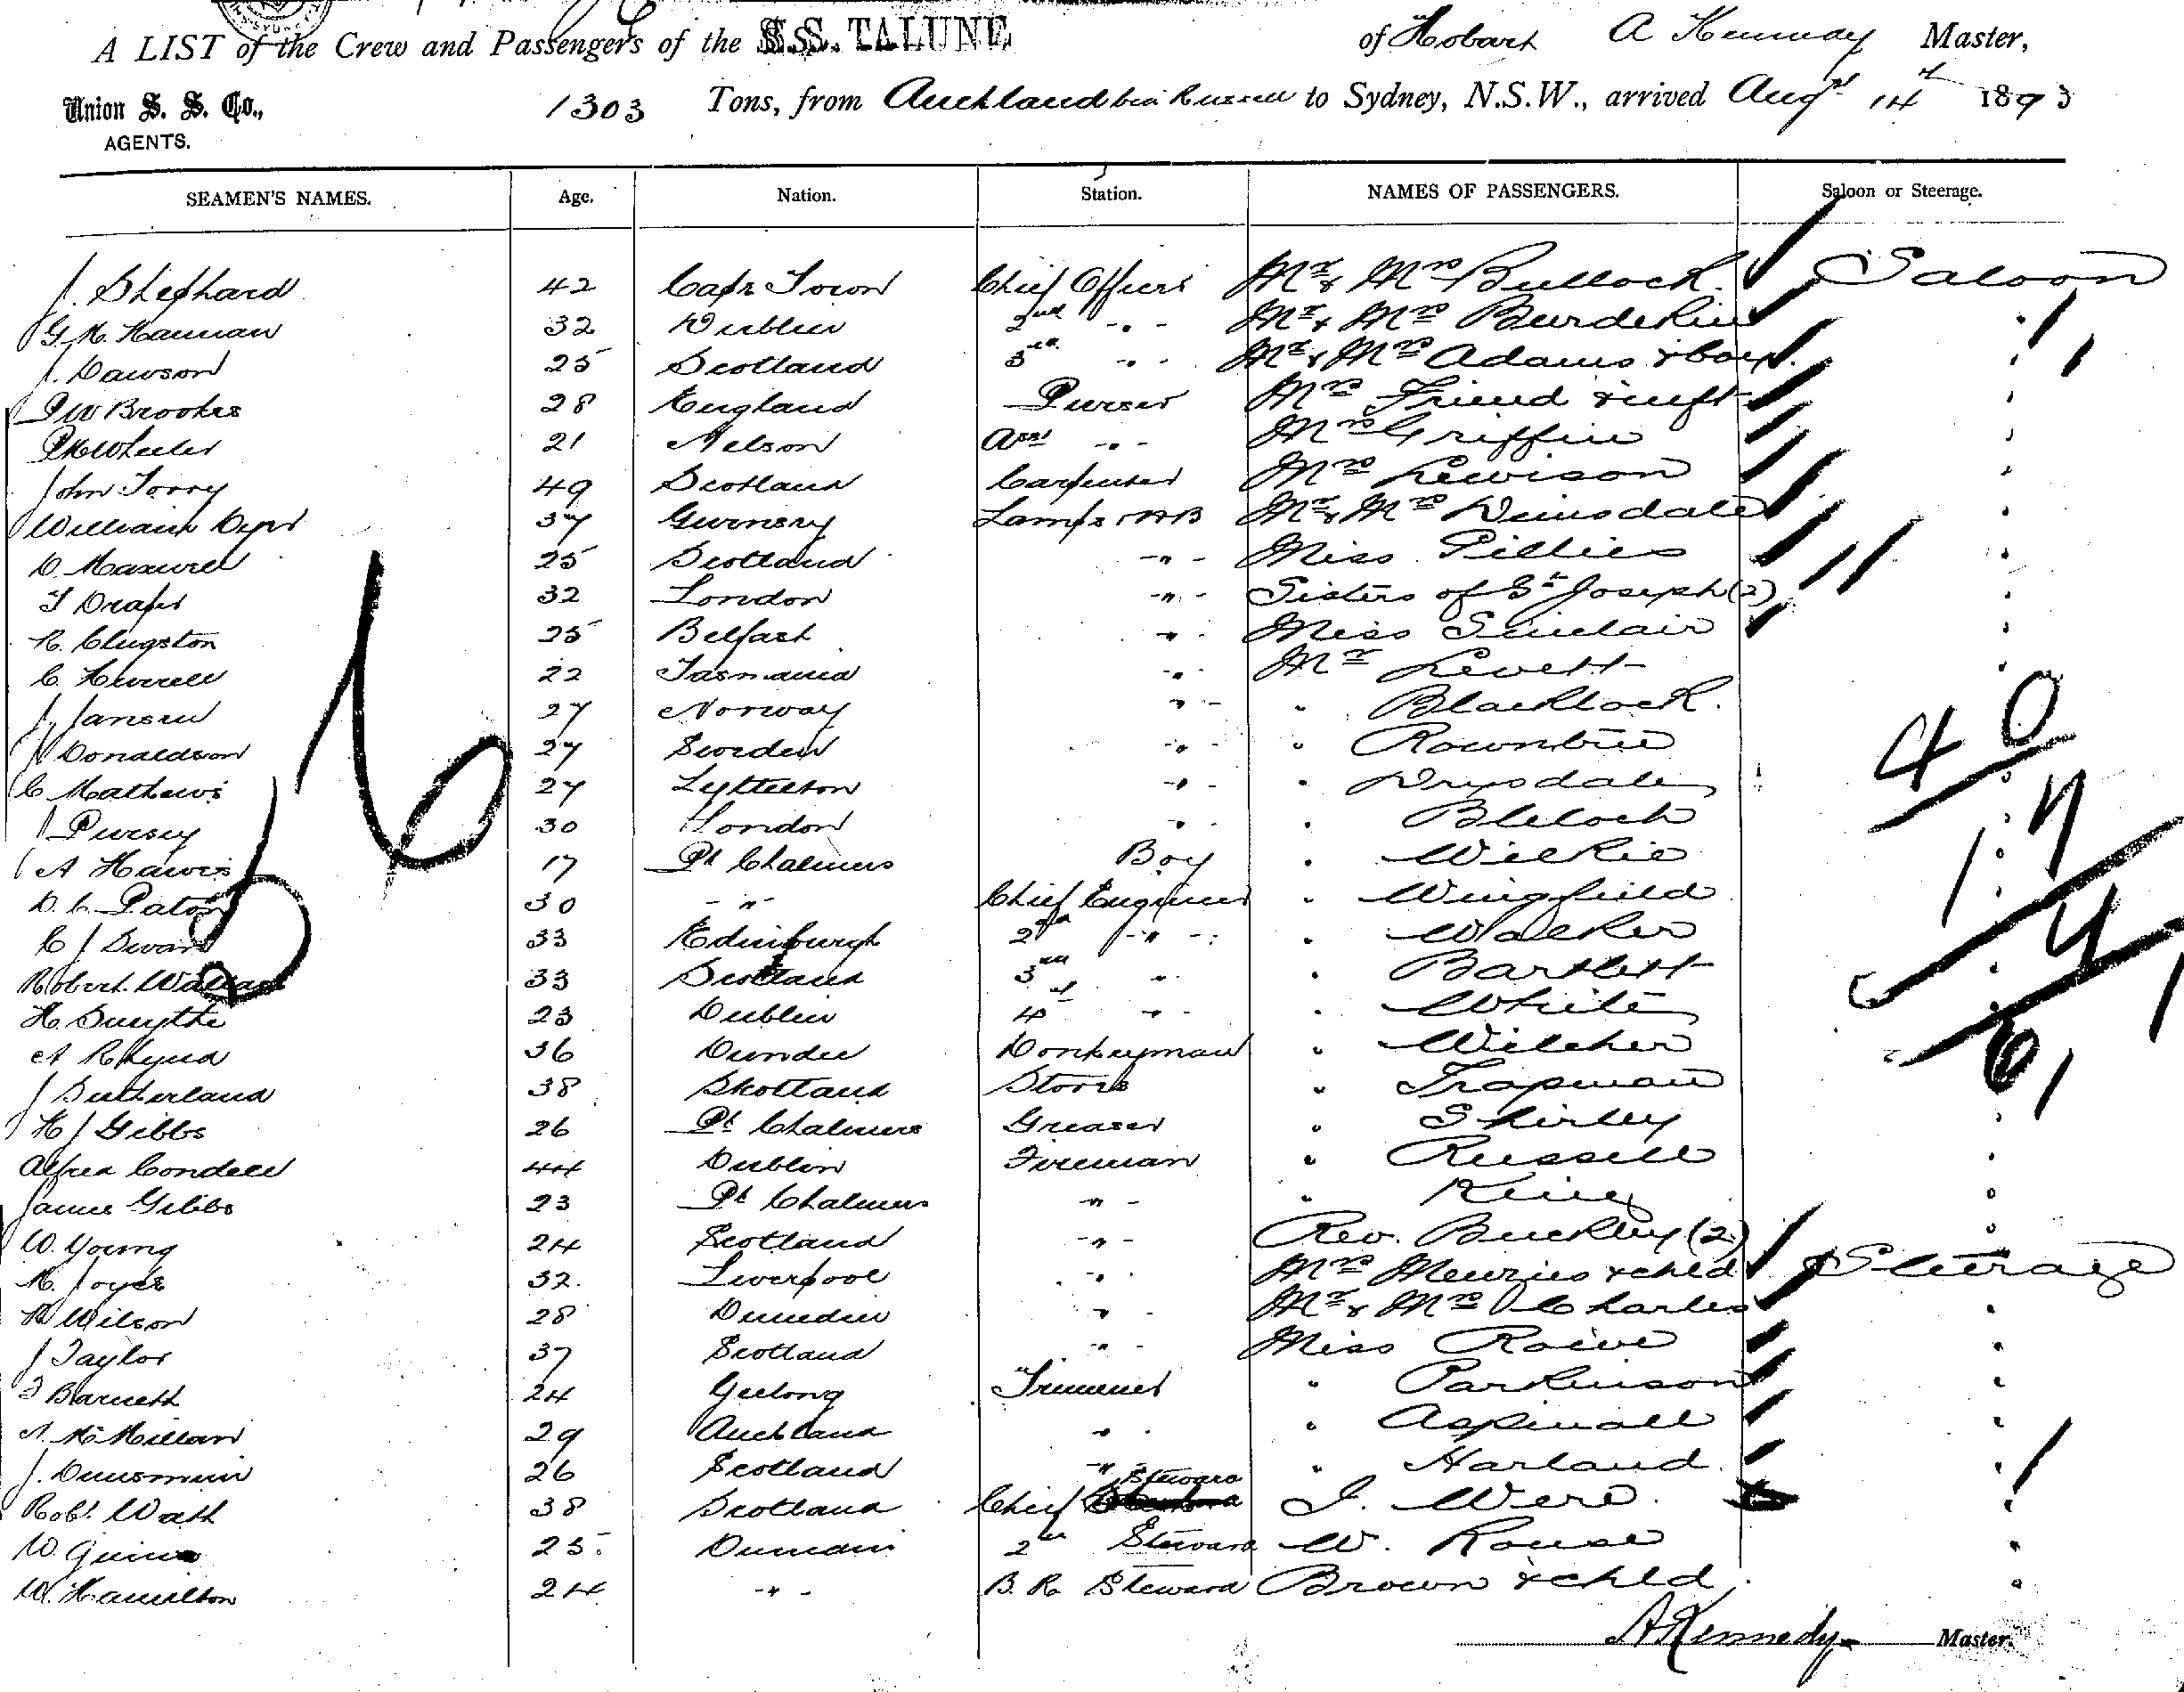 A LIST of the Crew and Passengers of the S.S. TALUNE of Hobart A Kennedy Master,
Union S. S. Co., 1303 Tons, from Auckland via Russell to Sydney, N.S.W., arrived Augst 14th 1893
AGENTS.
SEAMEN'S NAMES. Age. Nation. Station. NAMES OF PASSENGERS. Saloon or Steerage.
J. Shephard 42 Cape Town Chief Officer Mr & Mrs Bullock. Saloon
G. M. Hannan 32 Dublin 2nd -"- Mr & Mrs Burdekin "
J. Dawson 25 Scotland 3rd -"- Mr & Mrs Adams & boy. "
P W Brookes 28 England Purser Mrs Friend & inft "
Wheeler 21 Nelson Asst -"- Mrs Griffin "
John Torry 49 Scotland Carpenter Mrs Lewison "
William 37 Gurnsey Lamps & AB Mr & Mrs Dinsdale "
D. Maxwell 25 Scotland -"- Miss Pillies "
T Draper 32 London -"- Sisters of St Joseph (2) "
R. Clugston 25 Belfast " Miss Sinclair "
C. 22 Tasmania -"- Mr Levett "
J. Jansen 27 Norway "- " Blacklock. 40
J Donaldson 27 Sweden -"- " Rowntree
C Mathews 27 Lyttelton -"- " Drysdale "
J Pursey 30 London -"- " Blelock " 17
A Hawes 17 Pt Chalmers Boy " Wilkie "
D. C. Paton 30 -"- Chief Engineer " Wingfield "
C J Swan 33 Edinburgh 2nd -"- " Walker 4
Robert Wallace 33 Scotland 3rd " " Bartlett "
H. Smythe 23 Dublin 4th -"- " White "
A Rhynd 36 Dundee Donkeyman " Wilcher 61
J Sutherland 38 Skotland Stores " Trapman
H J Gibbs 26 Pt Chalmers Greaser " Shirley "
Alfred Condell 44 Dublin Fireman " Russell "
James Gibbs 23 Pt Chalmers -"- " King "
W. Young 24 Scotland -"- Rev. Buckley (2) "
M. Joyce 32. Liverpool -"- Mrs Menzies & chld Steerage
R Wilson 28 Dunedin " Mr & Mrs Charles "
J Taylor 37 Scotland -"- Miss Rowe "
J Barnett 24 Geelong Trimmer " Parkinson "
A. McMillan 29 Auckland " " Aspinall "
J. Dunsmuir 26 Scotland -"- " Harland. "
Robt Watt 38 Scotland Chief Steward J. Were. "
W. 25. 2nd Steward W. Rouse "
W. Hamilton 24 -"- B. R. Steward Brown & chld. "
56
A Kennedy Master.